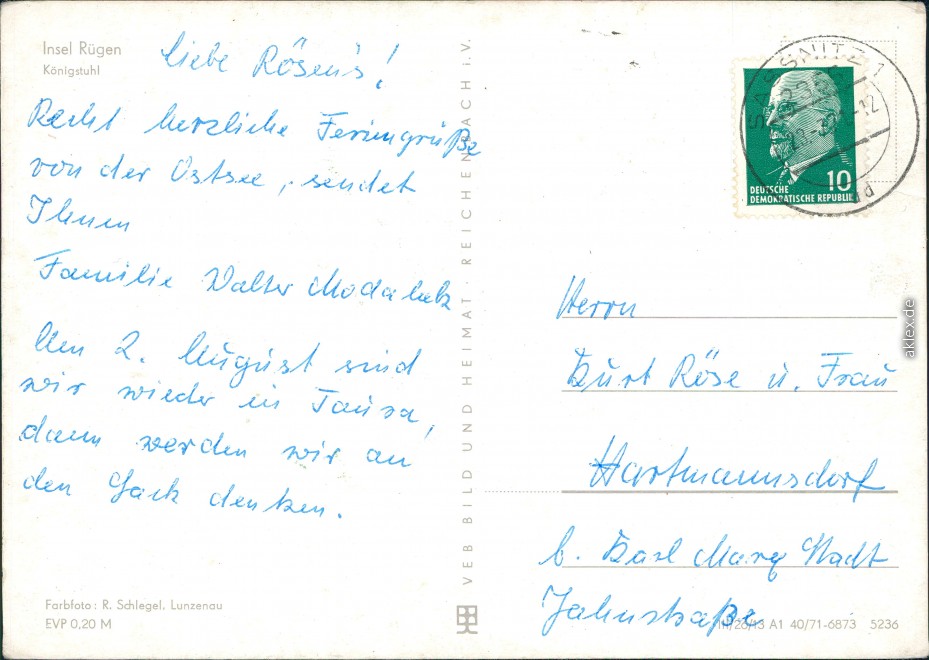 Insel Rügen
Königstuhl
Liebe Röse's!
Recht herzliche Feriengrüße
von der Ostsee, sendet
Ihnen
Familie Walter
Am 2. August sind
wir wieder in Taura,
dann werden wir an
den Sack denken.
Farbfoto: R. Schlegel, Lunzenau
EVP 0,20 M
VEB BILD UND HEIMAT · REICHENBACH I.V.
SASSNITZ 1
10
DEUTSCHE
DEMOKRATISCHE REPUBLIK
Herrn
Kurt Röse u. Frau
Hartmannsdorf
b. Karl Marx Stadt
Jahnstraße
III/26/13 A1 40/71-6873 5236
aklex.de